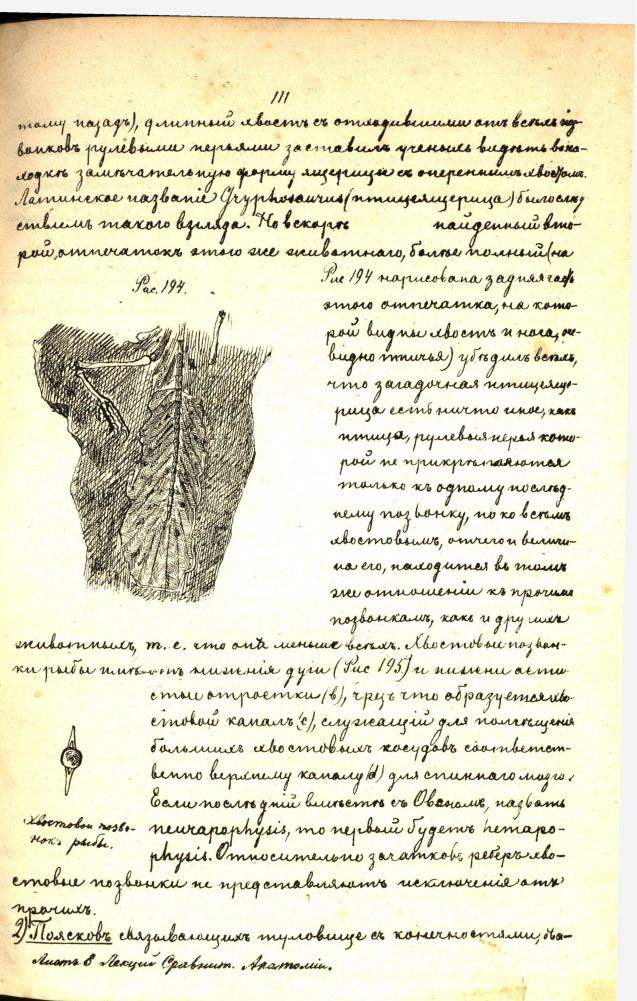 111
тому назадъ), длинный хвостъ съ отходившими отъ всѣхъ поз-
вонковъ рулевыми перьями заставилъ ученыхъ видѣть въ на-
ходкѣ замѣчательную форму ящерицы съ опереннымъ хвостомъ.
Латинское названіе Gryphosaurus (птицеящерица) было слѣд
ствіемъ такого взгляда. Но вскорѣ найденный вто-
рой, отпечатокъ этого же животнаго, болѣе полный (на
Рис. 194.
Рис 194 нарисована задняя часть
этого отпечатка, на кото-
рой видны хвостъ и нога, оче-
видно птичья) убѣдилъ всѣхъ,
что загадочная птицеяще-
рица есть ничто иное, какъ
птица, рулевыя перья кото-
рой не прикрѣпляются
только къ одному послѣд-
нему позвонку, но ко всѣмъ
хвостовымъ, отчего и величи-
на его, находится въ томъ
же отношеніи къ прочимъ
позвонкамъ, какъ и другихъ
животныхъ, т. е. что онъ меньше всѣхъ. Хвостовые позвон-
ки рыбы имѣютъ нижнія дуги (Рис 195) и нижніе ости-
стые отростки (в), чрезъ что образуется хво-
стовой каналъ (с), служащій для помѣщенія
большихъ хвостовыхъ сосудовъ соответст-
венно верхнему каналу (d) для спиннаго мозга.
Если послѣдній вмѣстѣ съ Овэномъ, назвать
neurapophysis, то первый будетъ hemapo-
physis. Относительно зачатковъ реберъ хво-
Хвостовой позво-
нокъ рыбы.
стовые позвонки не представляютъ исключенія отъ
прочихъ.
2) Поясковъ связывающихъ туловище съ конечностями, два-
Листъ 8 Лекцій Сравнит. Анатоміи.